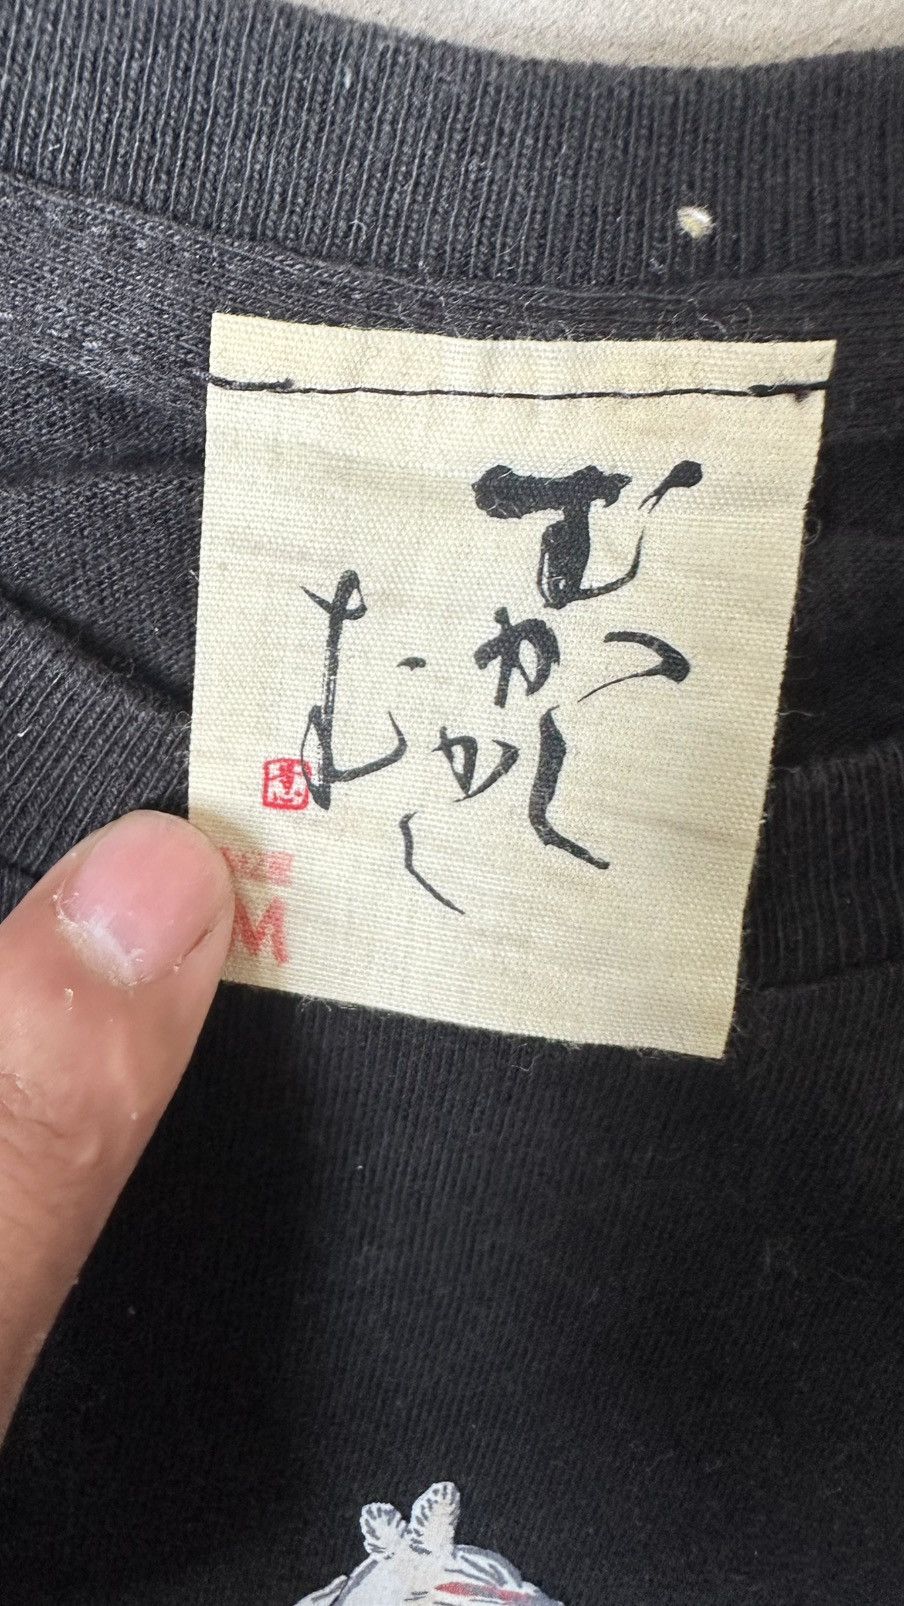 むかし
むかし
M